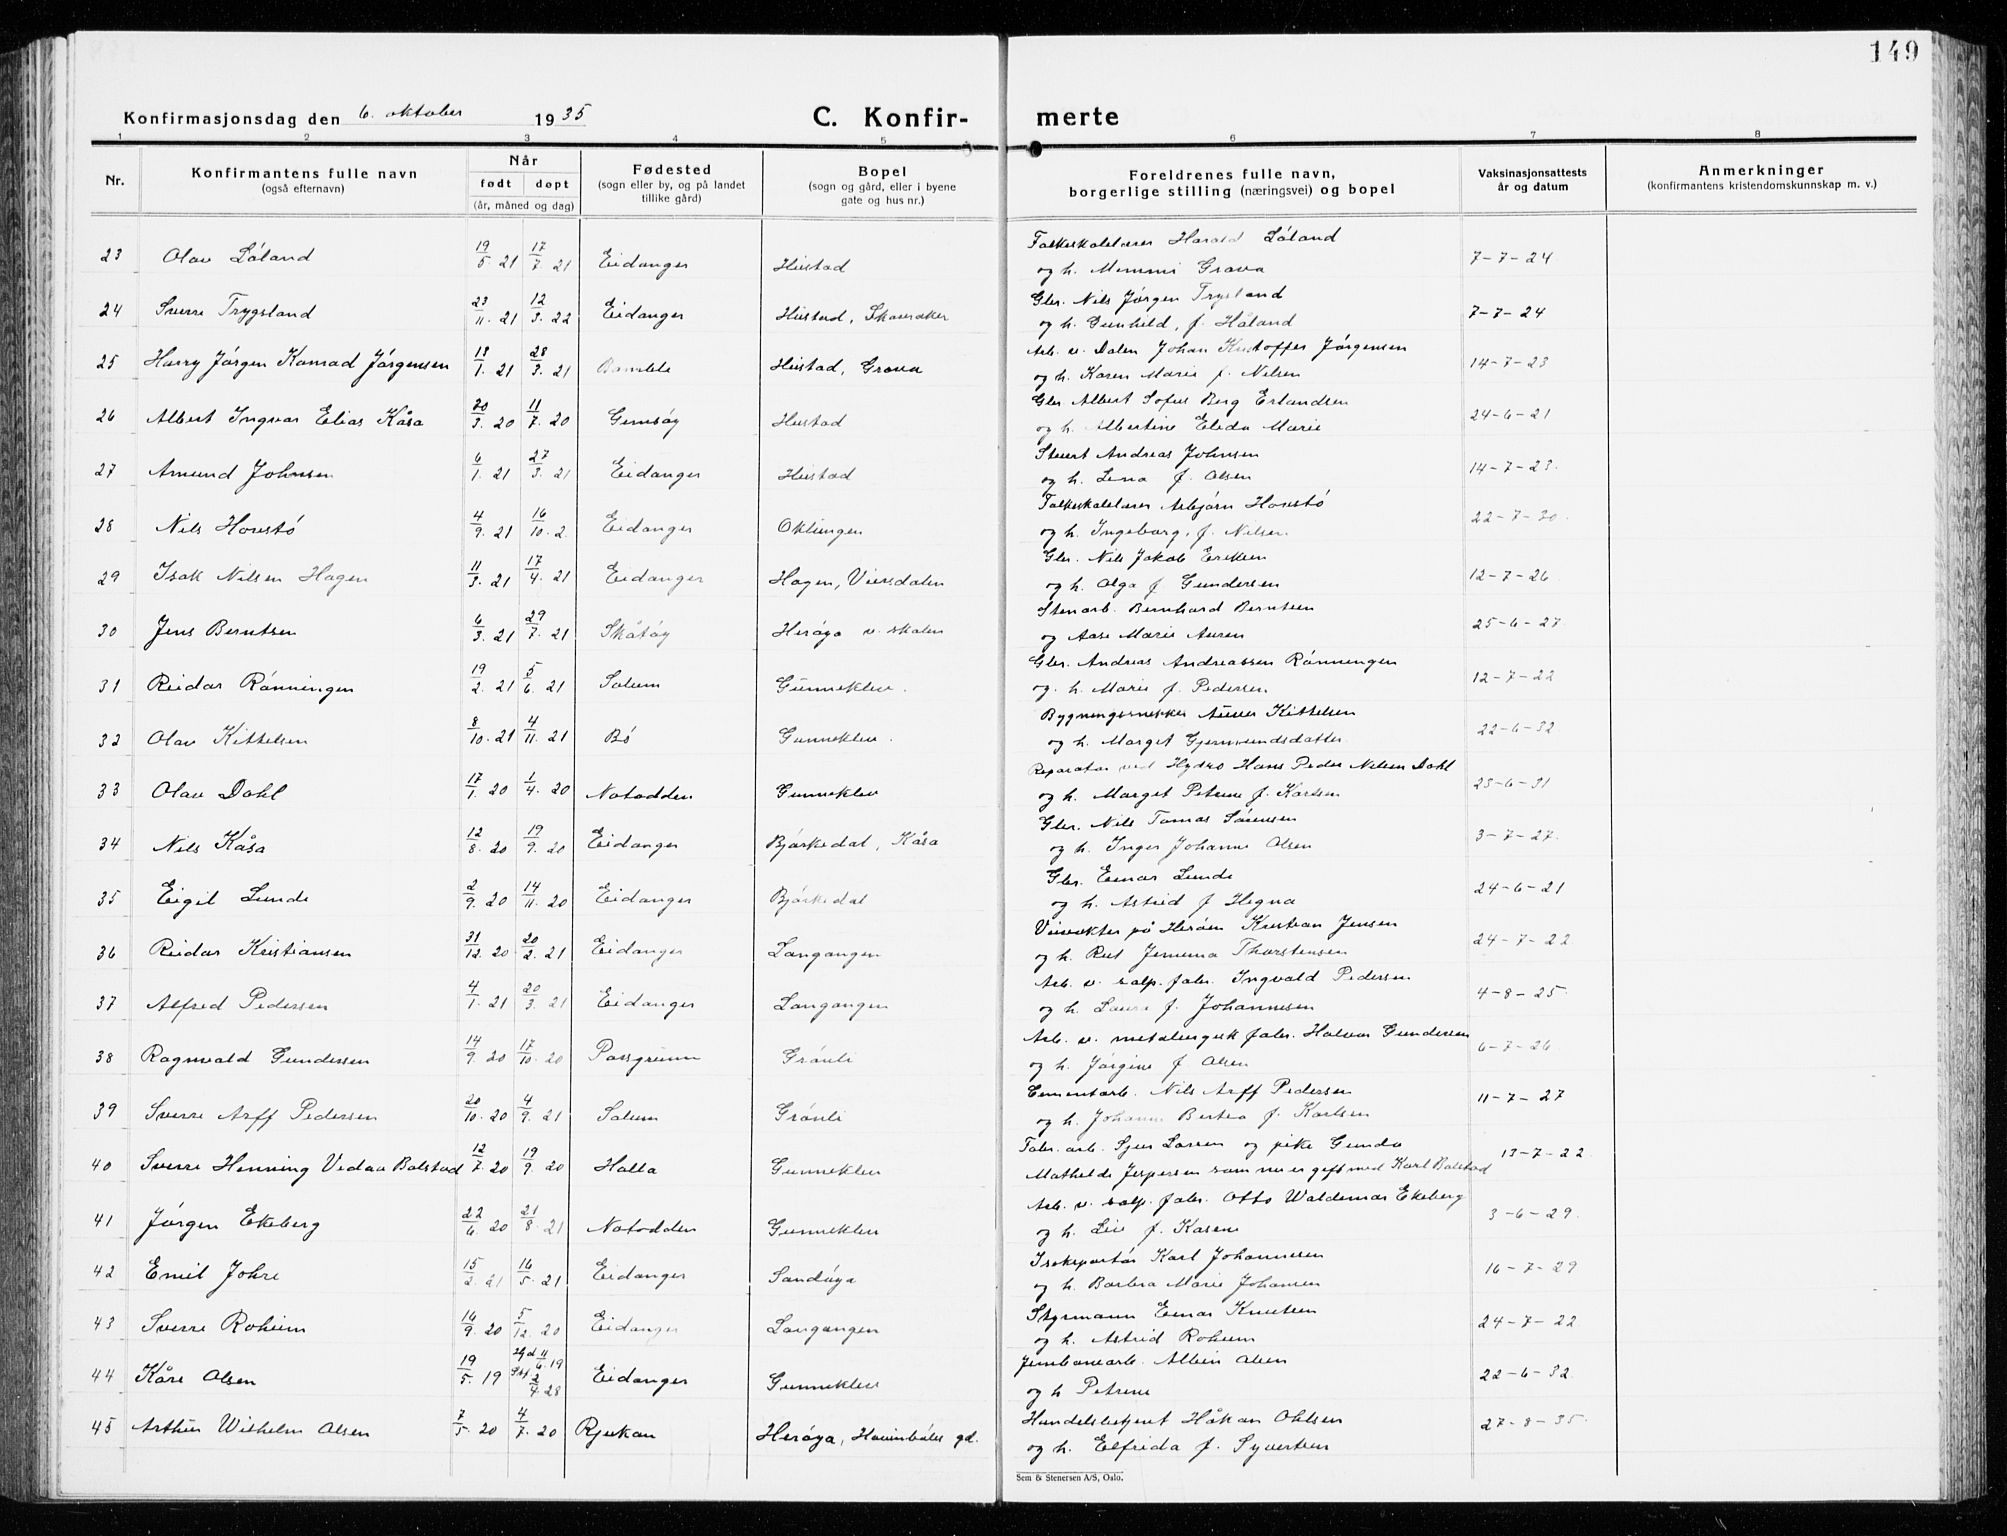 149
Konfirmasjonsdag den 6. oktober 1935 C. Konfirmerte
1 2 3 4 5 6 7 8
Nr. Konfirmantens fulle navn (også efternavn) Når født døpt (år, måned og dag) Fødested (sogn eller by, og på landet tillike gård) Bopel (sogn og gård, eller i byene gate og hus nr.) Foreldrenes fulle navn, borgerlige stilling (næringsvei) og bopel Vaksinasjonsattests år og datum Anmerkninger (konfirmantens kristendomskunnskap m. v.)
23 Olav Løland 19/5. 21 17/7. 21 Eidanger Heistad Folkeskolelærer Harald Løland
og h. Memmi Grava 7-7-24
24 Sverre Trygsland 23/11. 21 12/3. 22 Eidanger Heistad, Skavraker Gbr. Nils Jørgen Trygsland
og h. Gunhild, f. Håland 7-7-24
25 Harry Jørgen Konrad Jørgensen 13/1. 21 28/3. 21 Bamble Heistad, Grava Arb. v. Dalen Johan Kristoffer Jørgensen
og h. Karen Marie f. Nilsen 14-7-23
26 Albert Ingvar Elias Kåsa 20/3. 20 11/7. 20 Gimsøy Heistad Gbr. Albert Sofus Berg Erlandsen
og h. Albertine Elida Marie 24-6-21
27 Amund Johnsen 6/1. 21 27/3. 21 Eidanger Heistad Stuert Andreas Johnsen
og h. Lena f. Olsen 14-7-23.
28 Nils Hovstø 4/9. 21 16/10. 2 Eidanger Oklungen Folkeskolelærer Asbjørn Hovstø
og h. Ingeborg, f. Nilsen 22-7-30.
29 Isak Nilsen Hagen 11/3. 21 17/4. 21 Eidanger Hagen, Viersdalen Gbr. Nils Jakob Eriksen
og h. Olga f. Gundersen 12-7-26
30 Jens Berntsen 6/3. 21 29/7. 21 Skåtøy Herøya v. skolen Stenarb. Bernhard Berntsen
og Aase Marie Auren 25-6-27.
31 Reidar Rønningen 19/2. 21 5/6. 21 Solum Gunneklev. Gbr. Andreas Andreassen Rønningen
og. h. Marie f. Pedersen. 12-7-22
32 Olav Kittelsen 8/10. 21 4/11. 21 Bø Gunneklev. Bygningssnekker Kittelsen
og h. Marget Gjermundsdatter. 22-6-32
33 Olav Dahl 17/1. 20 1/4. 20 Notodden Gunneklev Reparatør ved Hydro Hans Peder Nilsen Dahl
og h. Marget Petrine f. Karlsen 23-6-31
34 Nils Kåsa 12/8. 20 19/9. 20 Eidanger Bjørkedal, Kåsa Gbr. Nils Tomas Sørensen
og h. Inger Johanne Olsen 3-7-27.
35 Eigil Lunde 2/9. 20 14/11. 20 Eidanger Bjørkedal Gbr. Einar Lunde
og h. Astrid f. Hegna 24-6-21
36 Reidar Kristiansen 31/12. 20 20/2. 21 Eidanger Langangen Veivokter på Herøen Kristian Jensen
og h. Rut Jemima Thorstensen 24-7-22
37 Alfred Pedersen 4/1. 21 20/3. 21 Eidanger Langangen Arb. v. salp. fabr. Ingvald Pedersen
og h. Laura f. Johannesen 4-8-25.
38 Ragnvald Gundersen 14/9. 20 17/10. 20 Porsgrunn Grønli Arb. v. metalurgisk fabr. Halvor Gundersen
og h. Jørgine f. Olsen 6-7-26
39 Sverre Arff Pedersen 20/10. 20 4/9. 21 Solum Grønli Cementarb. Nils Arff Pedersen
og h. Johanne Bertea f. Karlsen 11-7-27
40 Sverre Henning Vedaa Bolstad 12/7. 20 19/9. 20 Holla Gunneklev Fabr. arb. Sjur Larsen og pike Gunda
Mathilde Jespersen som nu er gift med Karl Bolstad 13-7-22
41 Jørgen Ekeberg 22/6. 20 21/8. 21 Notodden Gunneklev Arb. v. salp. fabr. Otto Waldemar Ekeberg
og h. Liv f. Kasene 3-6-29.
42 Emil Johre 15/2. 21 16/5. 21 Eidanger Sandøya Isekspørtør Karl Johannesen
og h. Barbra Marie Johansen 16-7-29
43 Sverre Roheim 16/9. 20 5/12. 20 Eidanger Langangen Styrmann Einar Knutsen
og h. Astrid Roheim 24-7-22
44 Kåre Olsen 19/5. 19 11/6. 19 2/4. 28 Eidanger Gunneklev Jernbanearb. Albin Olsen
og h Petrine 22-6-32.
45 Arthur Wilhelm Olsen 7/5. 20 4/7. 20 Rjukan Herøya, gd. Handelsbetjent Håkan Ohlsen
og h. Elfrida f. Syvertsen 27-8-35.
Sem & Stenersen A/S, Oslo.